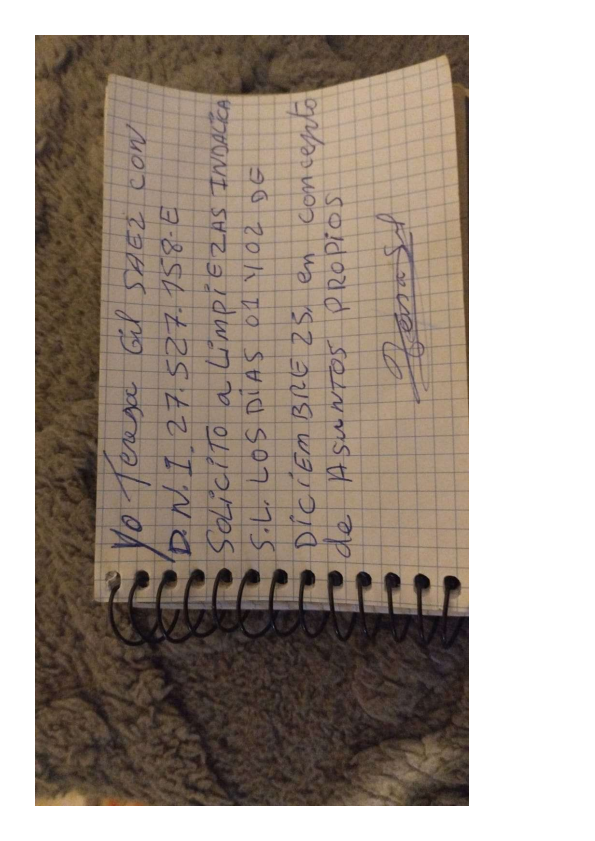 Yo Teresa Gil SAEZ CON
D.N.I. 27.527.158-E
SOLICITO a LIMPIEZAS INDALICA
S.L. LOS DÍAS 01 Y 02 DE
DICIEMBRE 25, en concepto
de ASUNTOS PROPIOS
Teresa Gil